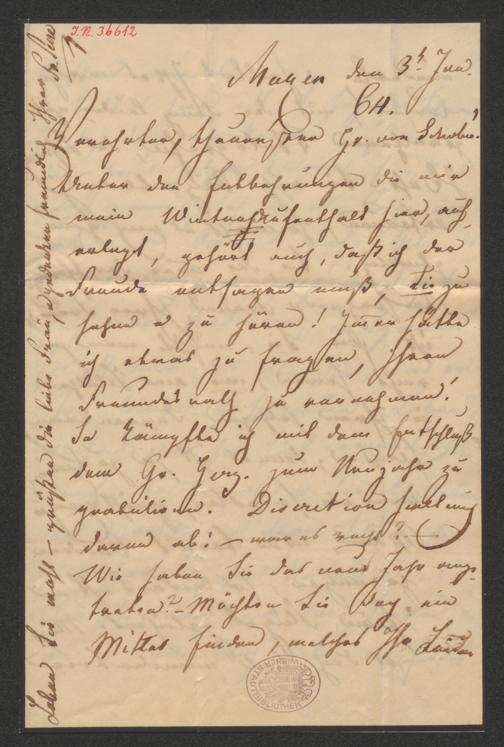 J.N. 36612
Meran den 3t Jan.
64.
Verehrter, theuerster Hr. von Schober!
Unter den Entbehrungen die mir
mein Winteraufenthalt hier, auf-
erlegt, gehört auch, daß ich der
Freude entsagen muß, Sie zu
sehn u zu hören! Immer hätte
ich etwas zu fragen, Ihren
Freundesrath zu vernehmen!
So kämpfte ich mit dem Entschluß
dem Gr. Herz. zum Neujahr zu
gratuliren. Discretion hielt mich
davon ab! – war es recht? –
Wie haben Sie das neue Jahr ange-
treten? – Möchten Sie doch ein
Mittel finden, welches Ihr Leiden
Leben Sie wohl – grüßen die liebe Frau, u gedenken freundlich Ihrer